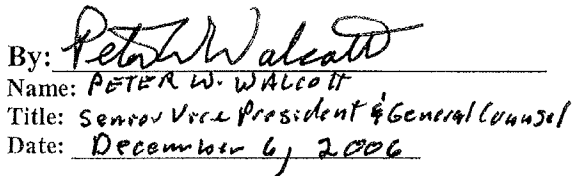 By: Peter W Walcott
Name: PETER W. WALCOTT
Title: Senior Vice President & General Counsel
Date: December 6, 2006